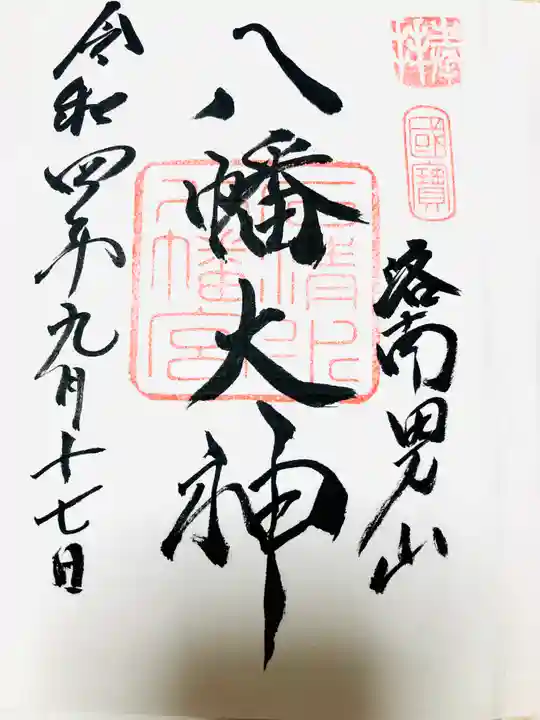 奉拝
國寶
洛南男山
八幡大神
石清水
八幡宮
令和四年九月十七日